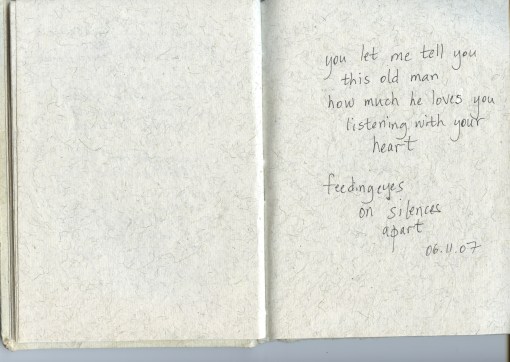 you let me tell you
this old man
how much he loves you
listening with your
heart
feeding eyes
on silences
apart
06.11.07